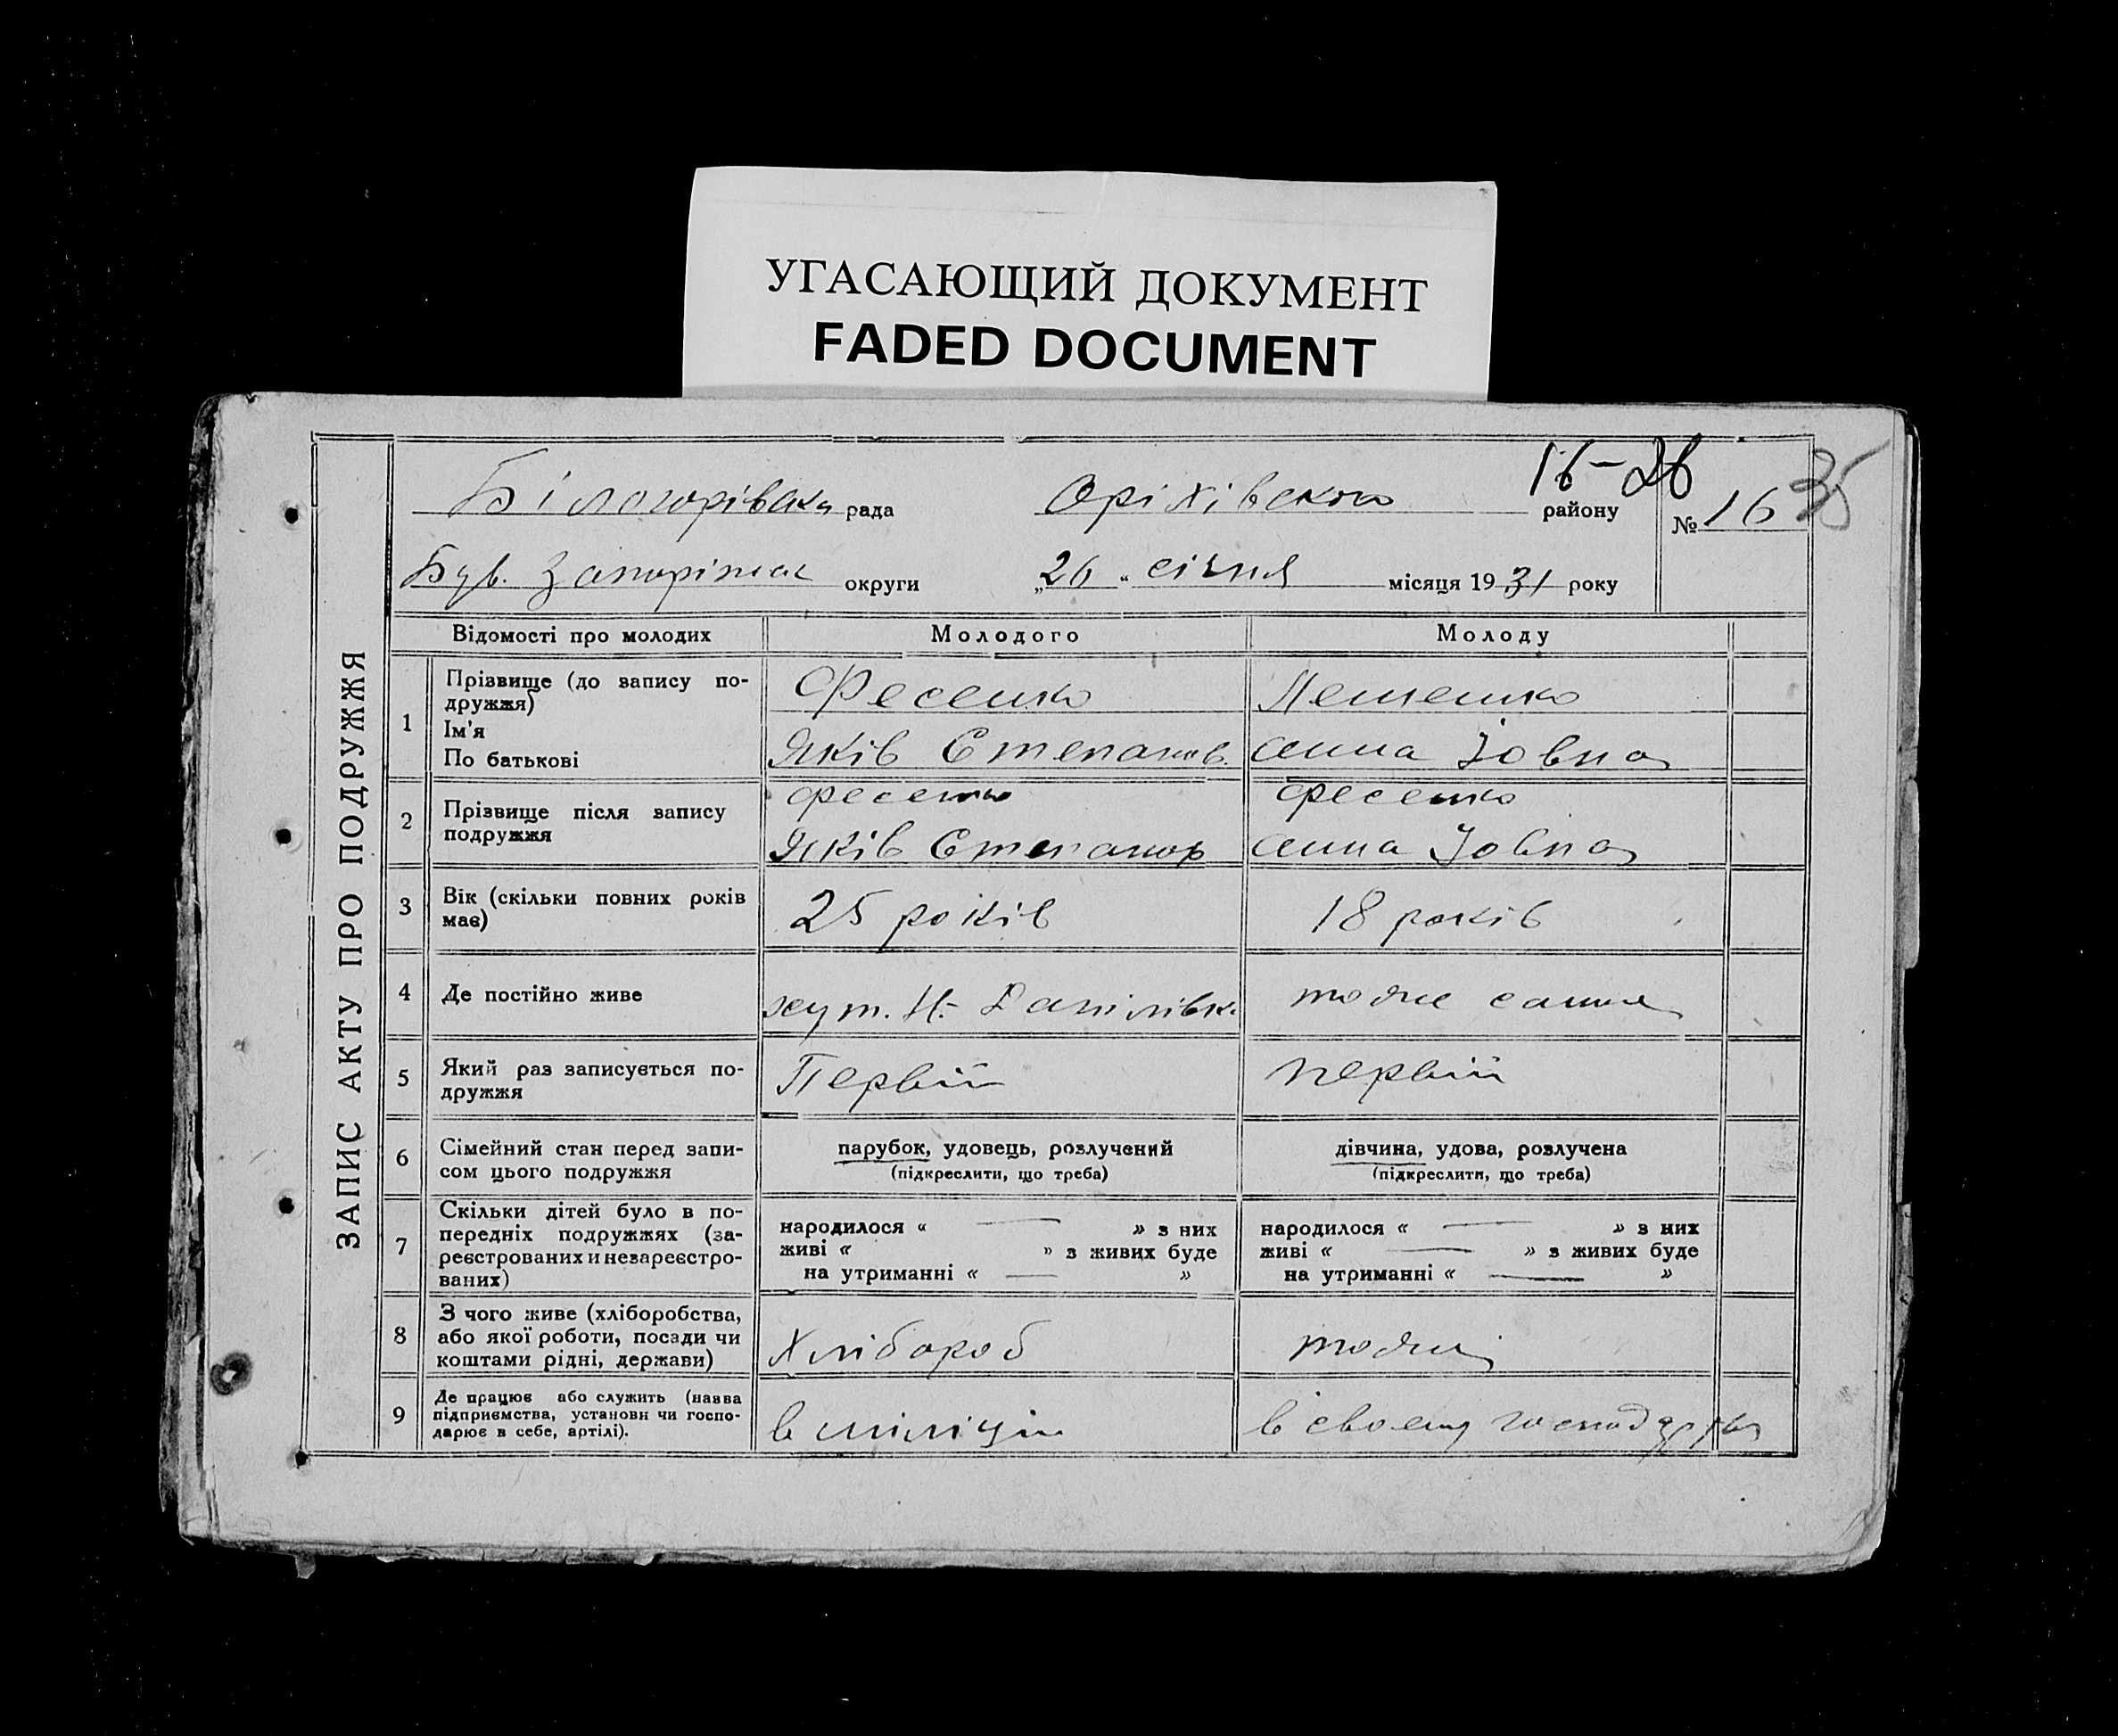 УГАСАЮЩИЙ ДОКУМЕНТ
FADED DOCUMENT
ЗАПИС АКТУ ПРО ПОДРУЖЖЯ
16-26
35
Білогорівська рада Оріхівского району № 16
Був. Запоріжас округи „26 " січня місяця 1931 року
Відомості про молодих Молодого Молоду
1 Прізвище (до запису по-
дружжя)
Ім'я
По батькові
Фесенко
Яків Степанов.
Лешенко
Анна Іовна
2 Прізвище після запису
подружжя
Фесенко
Яків Степанов
Фесенко
Анна Іовна
3 Вік (скільки повних років
має)
25 років
18 років
4 Де постійно живе
хут. Н.- Данілівк.
тоже саме
5 Який раз записується по-
дружжя
Первій
первій
6 Сімейний стан перед запи-
сом цього подружжя
парубок, удовець, розлучений
(підкреслити, що треба)
дівчина, удова, розлучена
(підкреслити, що треба)
7 Скільки дітей було в по-
передніх подружжях (за-
реєстрованих и незареєстро-
ваних)
народилося « — » з них
живі « » з живих буде
на утриманні « — »
народилося « — » з них
живі « — » з живих буде
на утриманні « — »
8 З чого живе (хліборобства,
або якої роботи, посади чи
коштами рідні, держави)
Хлібороб
тоже
9 Де працює або служить (назва
підприємства, установи чи госпо-
дарює в себе, артілі).
в міліціи
в своему господарстві